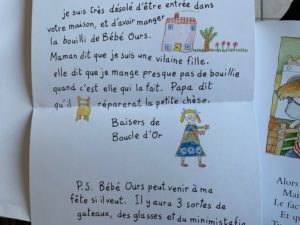 je suis très désolé d'être entrée dans
votre maison, et d'avoir manger
la bouilli de Bébé Ours.
Maman dit que je suis une vilaine fille.
elle dit que je mange presque pas de bouillie
quand c'est elle qui la fait. Papa dit
qu'il réparerat la petite chèse.
Baisers de
Boucle d'Or
P.S. Bébé Ours peut venir à ma
fête si il veut. Il y aura 3 sortes de
gateaux, des glasses et du
Alors
Mai
Le fac
Et qu